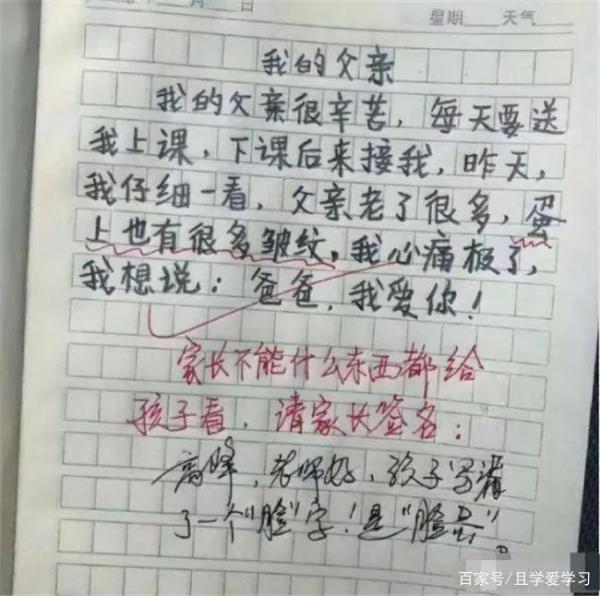 月 日
星期 天气
我的父亲
我的父亲很辛苦，每天要送
我上课，下课后来接我，昨天，
我仔细一看，父亲老了很多，蛋
上也有很多皱纹，我心痛极了，
我想说：爸爸，我爱你！
家长不能什么东西都给
孩子看，请家长签名：
高峰，老师好，孩子写漏
了一个“脸”字！是“脸蛋”。
百家号/且学爱学习